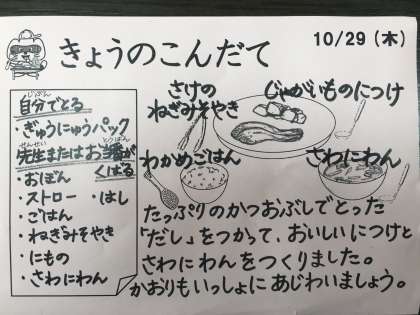 きょうのこんだて
10/29(木)
自分でとる
じぶん
・ぎゅうにゅうパック
せんせい とうばん
先生またはお当番が
くばる
・おぼん
・ストロー ・はし
・ごはん
・ねぎみそやき
・にもの
・さわにわん
さけの
ねぎみそやき
じゃがいものにつけ
わかめごはん
さわにわん
たっぷりのかつおぶしでとった
「だし」をつかって、おいしいにつけと
さわにわんをつくりました。
かおりもいっしょにあじわいましょう。